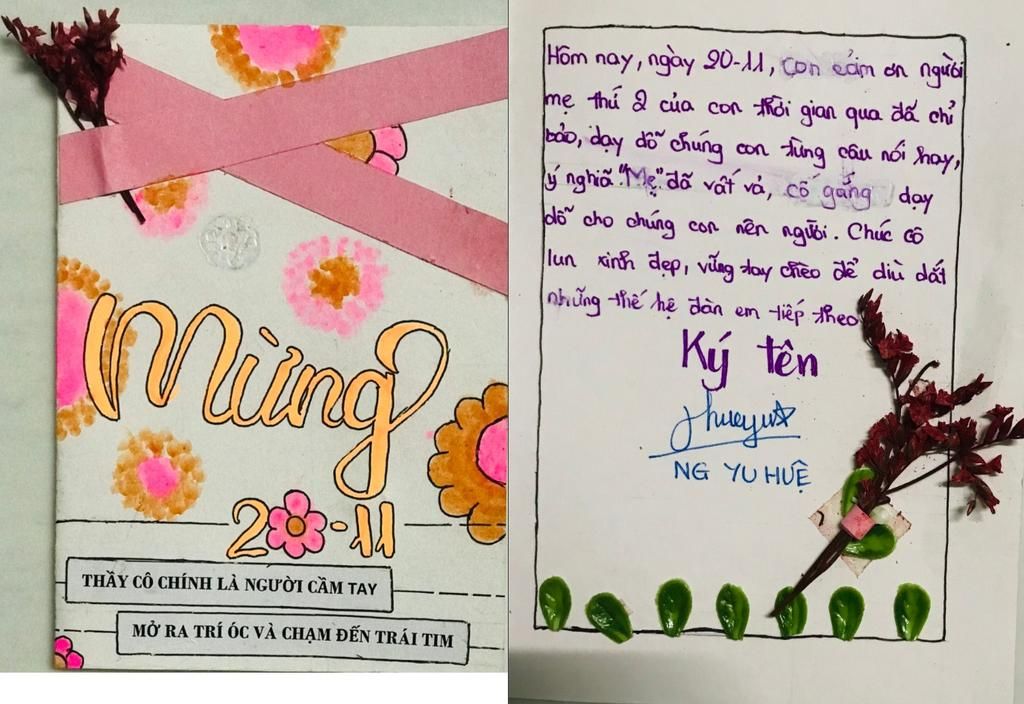 Mừng
20-11
THẦY CÔ CHÍNH LÀ NGƯỜI CẦM TAY
MỞ RA TRÍ ÓC VÀ CHẠM ĐẾN TRÁI TIM
Hôm nay, ngày 20-11, con cảm ơn người
mẹ thứ 2 của con thời gian qua đã chỉ
bảo, dạy dỗ chúng con từng câu nói hay,
ý nghĩa. "Mẹ" đã vất vả, cố gắng dạy
dỗ cho chúng con nên người. Chúc cô
lun xinh đẹp, vững tay chèo để dìu dắt
những thế hệ đàn em tiếp theo
Ký tên
NG YU HUỆ